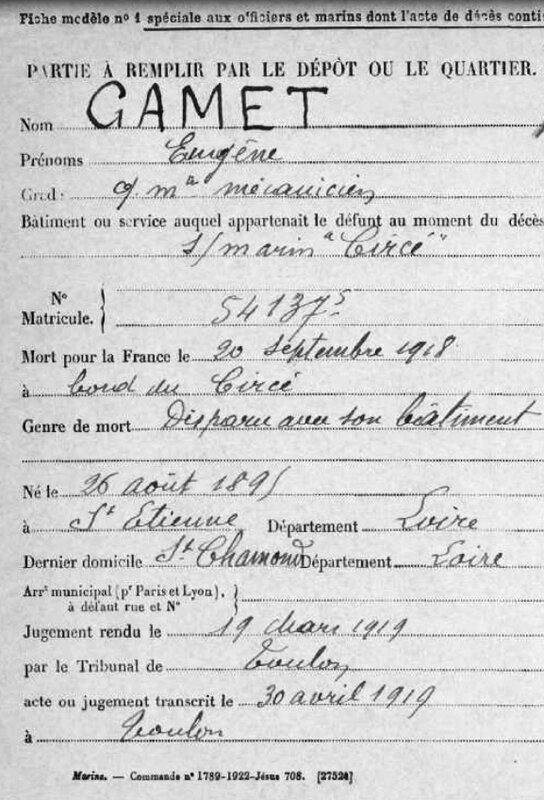 Fiche modèle n° 1 spéciale aux officiers et marins dont l'acte de décès conti
PARTIE À REMPLIR PAR LE DÉPÔT OU LE QUARTIER.
Nom GAMET
Prénoms Eugène
Grade q. m. mécanicien
Bâtiment ou service auquel appartenait le défunt au moment du décès
s/marin "Circé"
N° Matricule. 54137⁵
Mort pour la France le 20 septembre 1918
à bord du Circé
Genre de mort Disparu avec son bâtiment
Né le 26 août 1895
à St Etienne Département Loire
Dernier domicile St Chamond Département Loire
Arrt municipal (pr Paris et Lyon),
à défaut rue et N°
Jugement rendu le 19 mars 1919
par le Tribunal de Toulon
acte ou jugement transcrit le 30 avril 1919
à Toulon
Marine. — Commande n° 1789-1922-Jésus 708. [27524]